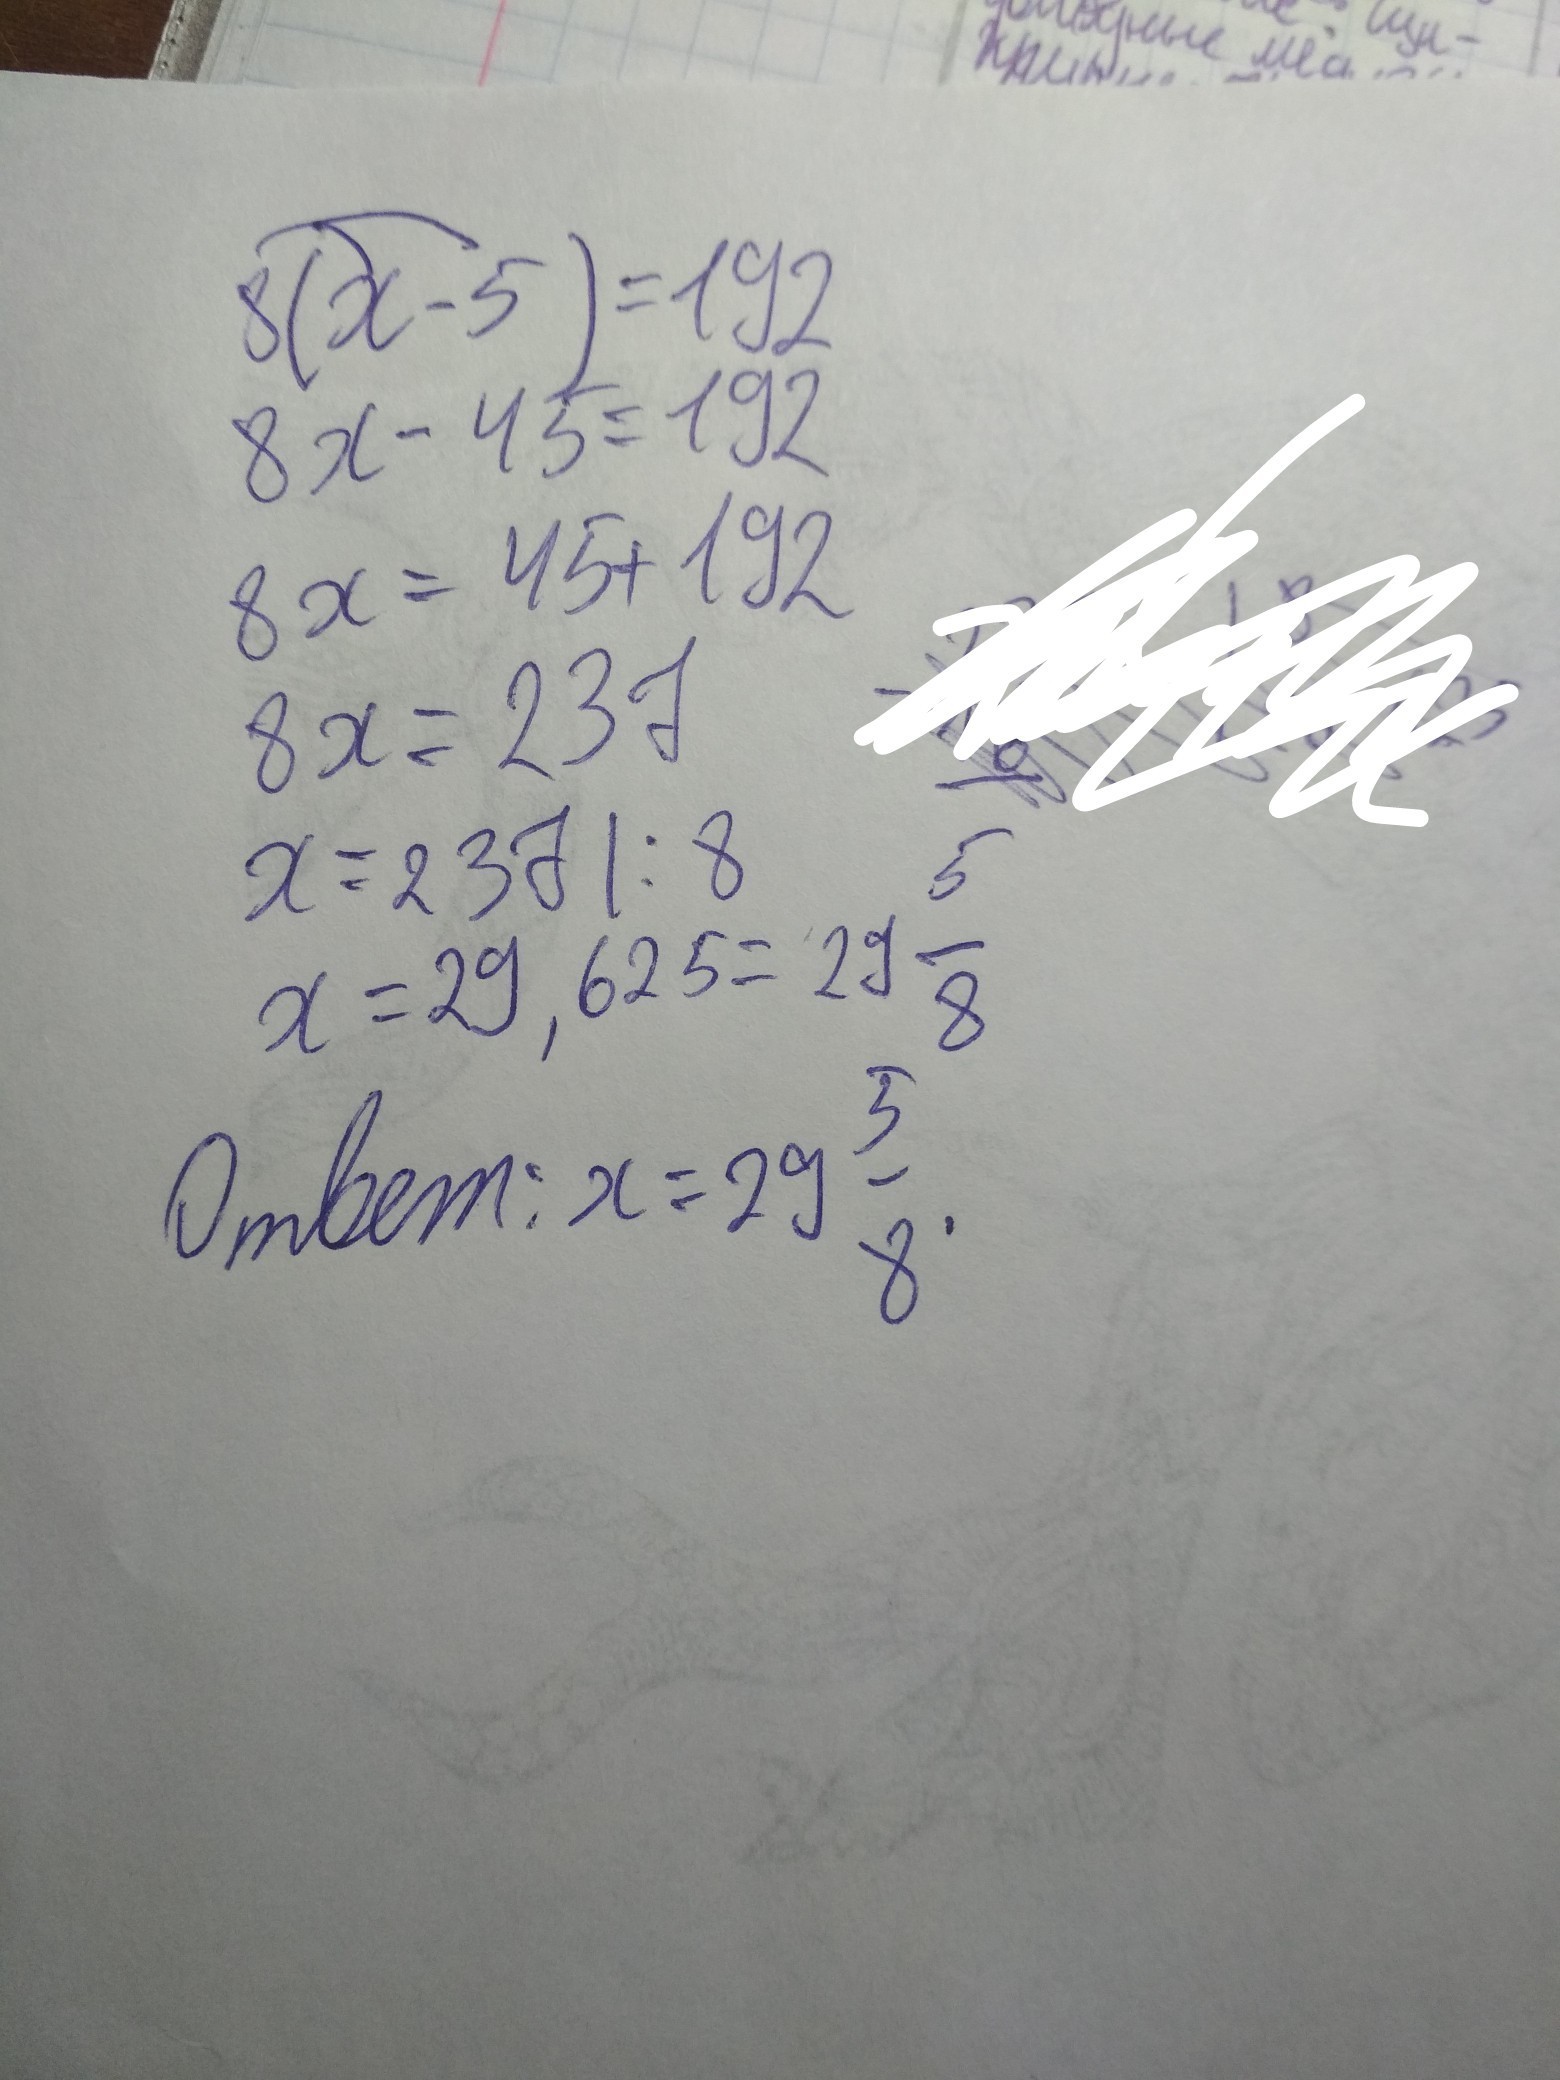 8(x-5)=192
8x-45=192
8x=45+192
8x=237
x=237|:8
x=29,625=29 5/8
Ответ: x=29 5/8.